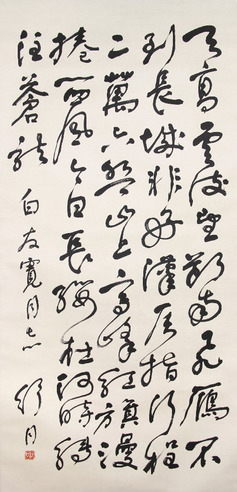 天高雲淡望斷南飛雁不
到長城非好漢屈指行程
二萬六盤山上高峰紅旗漫
捲西風今日長纓在手何時縛
住蒼龍 白友寬同志 舒同